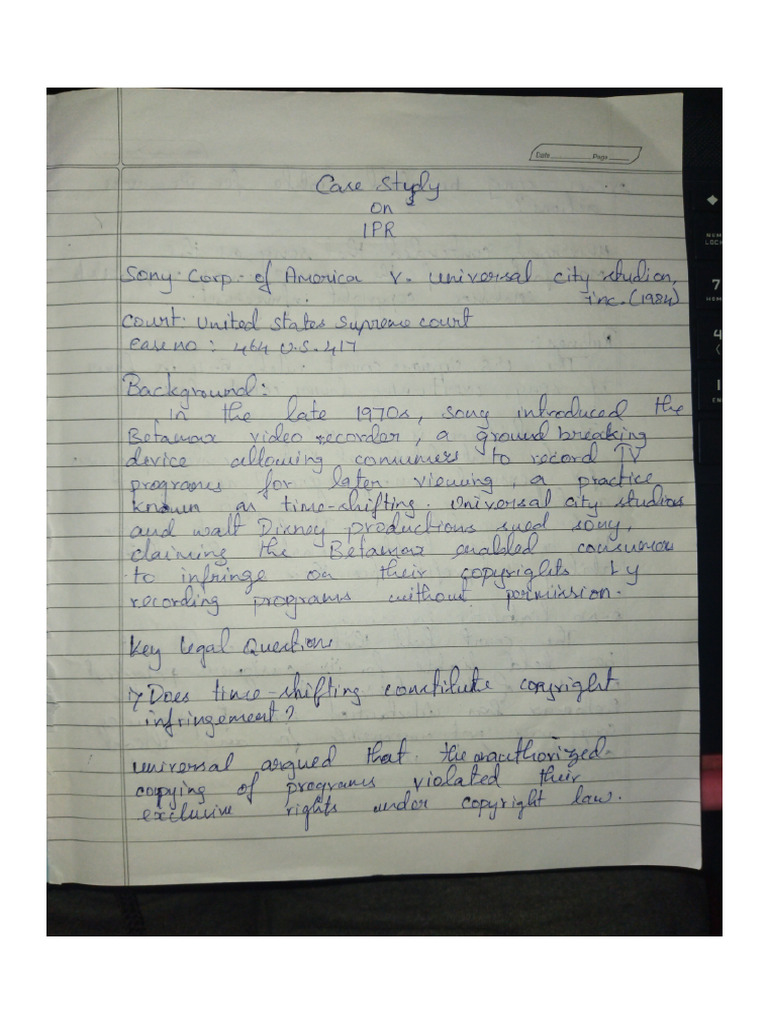 Date Page
Case Study
on
IPR
Sony Corp. of America v. Universal city studion,
inc. (1984)
Court: United States Supreme court
Case no : 464 U.S. 417
Background:
In the late 1970s, sony introduced the
Betamax video recorder, a ground breaking
device allowing consumers to record TV
programs for later viewing, a practice
known as time-shifting. Universal city studios
and walt Disney productions sued sony,
claiming the Betamax enabled consumers
to infringe on their copyrights by
recording programs without permission.
Key legal Questions
i> Does time-shifting constitute copyright
infringement?
Universal argued that the
copying of programs violated their
exclusive rights under copyright law.